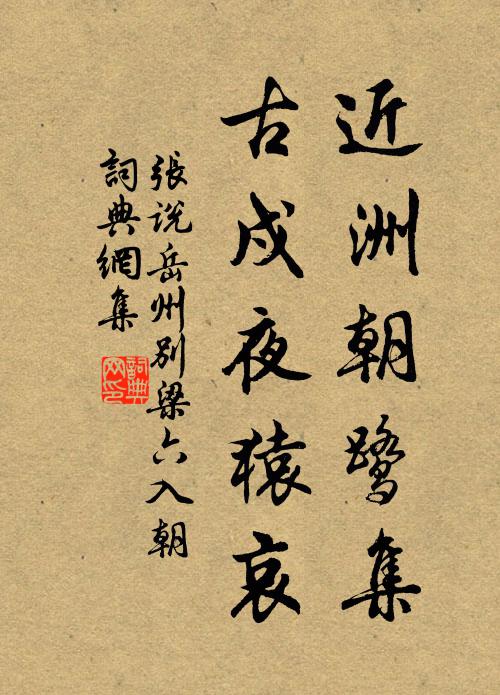 近洲朝鷺集
古戍夜猿哀
張說岳州別梁六入朝
詞典網集
詞典
网印